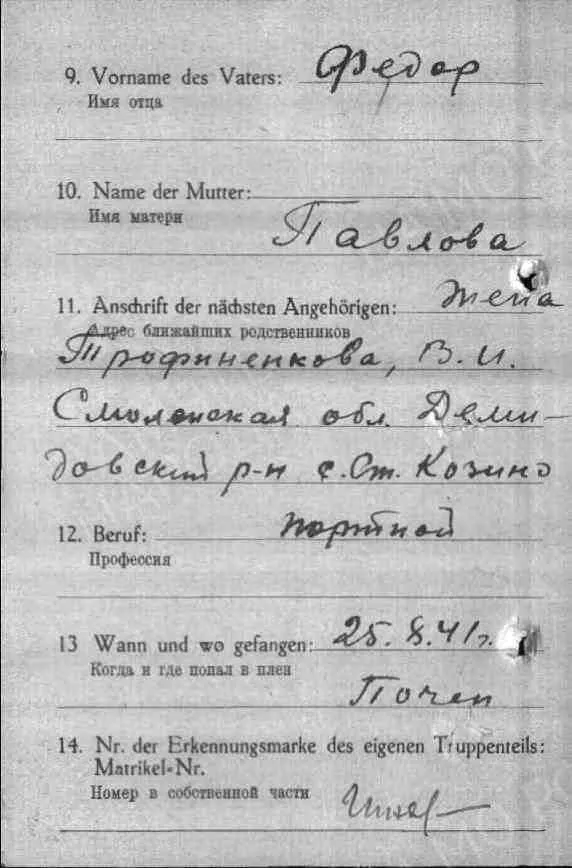 9. Vorname des Vaters: Федор
Имя отца
10. Name der Mutter:
Имя матери Павлова
11. Anschrift der nächsten Angehörigen: Жена
Адрес ближайших родственников
Трофиненкова, В.И.
Смоленская обл. Деми-
довский р-н с. Ст. Козино
12. Beruf: портной
Профессия
13 Wann und wo gefangen: 25. 8. 41 г.
Когда и где попал в плен
Почеп
14. Nr. der Erkennungsmarke des eigenen Truppenteils:
Matrikel-Nr.
Номер в собственной части